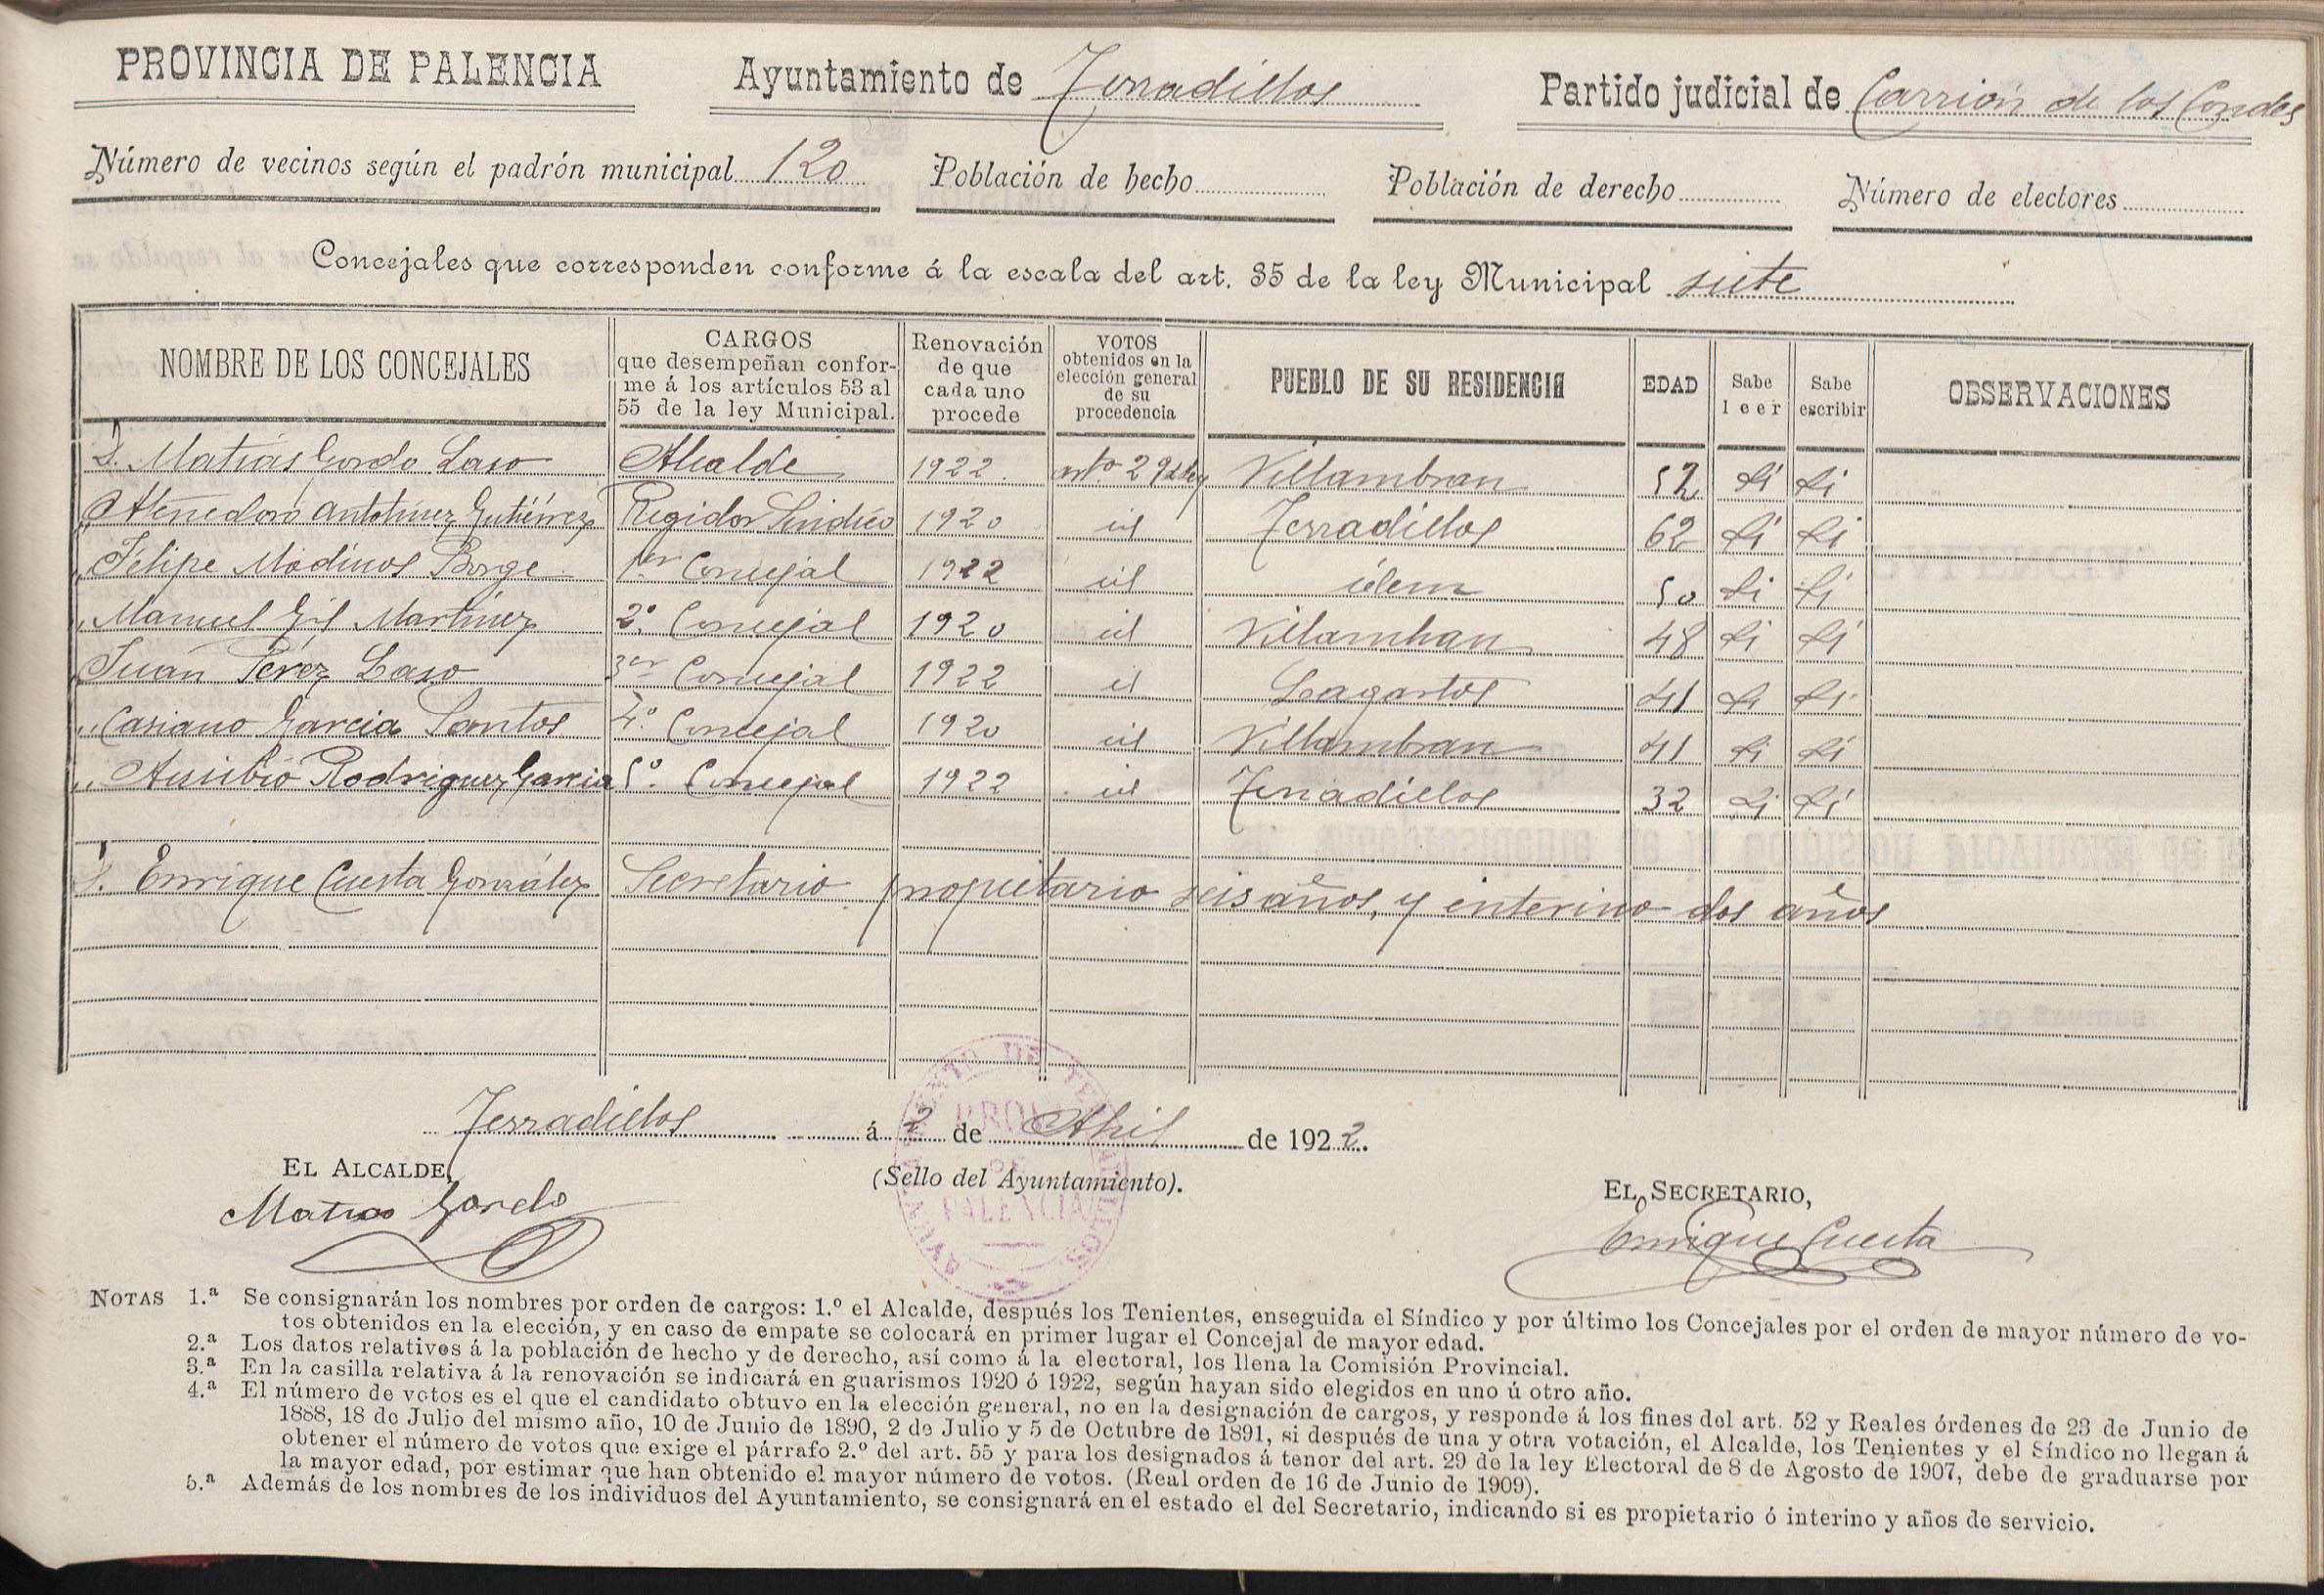 PROVINCIA DE PALENCIA Ayuntamiento de Terradillos Partido judicial de Carrión de los Condes
Número de vecinos según el padrón municipal 120 Población de hecho Población de derecho Número de electores
Concejales que corresponden conforme á la escala del art. 35 de la ley Municipal siete
NOMBRE DE LOS CONCEJALES
CARGOS
que desempeñan confor-
me á los artículos 53 al
55 de la ley Municipal.
Renovación
de que
cada uno
procede
VOTOS
obtenidos en la
elección general
de su
procedencia
PUEBLO DE SU RESIDENCIA
EDAD
Sabe
leer
Sabe
escribir
OBSERVACIONES
D. Matias Gordo Laso Alcalde 1922 artº 29 ley Villambran 52 Si Si
" Atenedoro Antolinez Gutiérrez Regidor Sindico 1920 id Terradillos 62 Si Si
" Felipe Modinos Borge 1er Concejal 1922 id idem 50 Si Si
" Manuel Gil Martinez 2º Concejal 1920 id Villambran 48 Si Si
" Juan Perez Laso 3er Concejal 1922 id Lagartos 41 Si Si
" Casiano Garcia Santos 4º Concejal 1920 id Villambran 41 Si Si
" Ausibio Rodriguez Garcia 5º Concejal 1922 id Terradillos 32 Si Si
D. Enrique Cuesta González Secretario propietario seis años, y interino dos años
Terradillos á 2 de Abril de 1922.
EL ALCALDE,
(Sello del Ayuntamiento).
EL SECRETARIO,
Matias Gordo
Enrique Cuesta
AYUNTAMIENTO DE TERRADILLOS
PROVINCIA
DE
PALENCIA
NOTAS 1.ª Se consignarán los nombres por orden de cargos: 1.º el Alcalde, después los Tenientes, enseguida el Síndico y por último los Concejales por el orden de mayor número de vo-
tos obtenidos en la elección, y en caso de empate se colocará en primer lugar el Concejal de mayor edad.
2.ª Los datos relativos á la población de hecho y de derecho, así como á la electoral, los llena la Comisión Provincial.
3.ª En la casilla relativa á la renovación se indicará en guarismos 1920 ó 1922, según hayan sido elegidos en uno ú otro año.
4.ª El número de votos es el que el candidato obtuvo en la elección general, no en la designación de cargos, y responde á los fines del art. 52 y Reales órdenes de 23 de Junio de
1888, 18 de Julio del mismo año, 10 de Junio de 1890, 2 de Julio y 5 de Octubre de 1891, si después de una y otra votación, el Alcalde, los Tenientes y el Síndico no llegan á
obtener el número de votos que exige el párrafo 2.º del art. 55 y para los designados á tenor del art. 29 de la ley Electoral de 8 de Agosto de 1907, debe de graduarse por
la mayor edad, por estimar que han obtenido el mayor número de votos. (Real orden de 16 de Junio de 1909).
5.ª Además de los nombres de los individuos del Ayuntamiento, se consignará en el estado el del Secretario, indicando si es propietario ó interino y años de servicio.